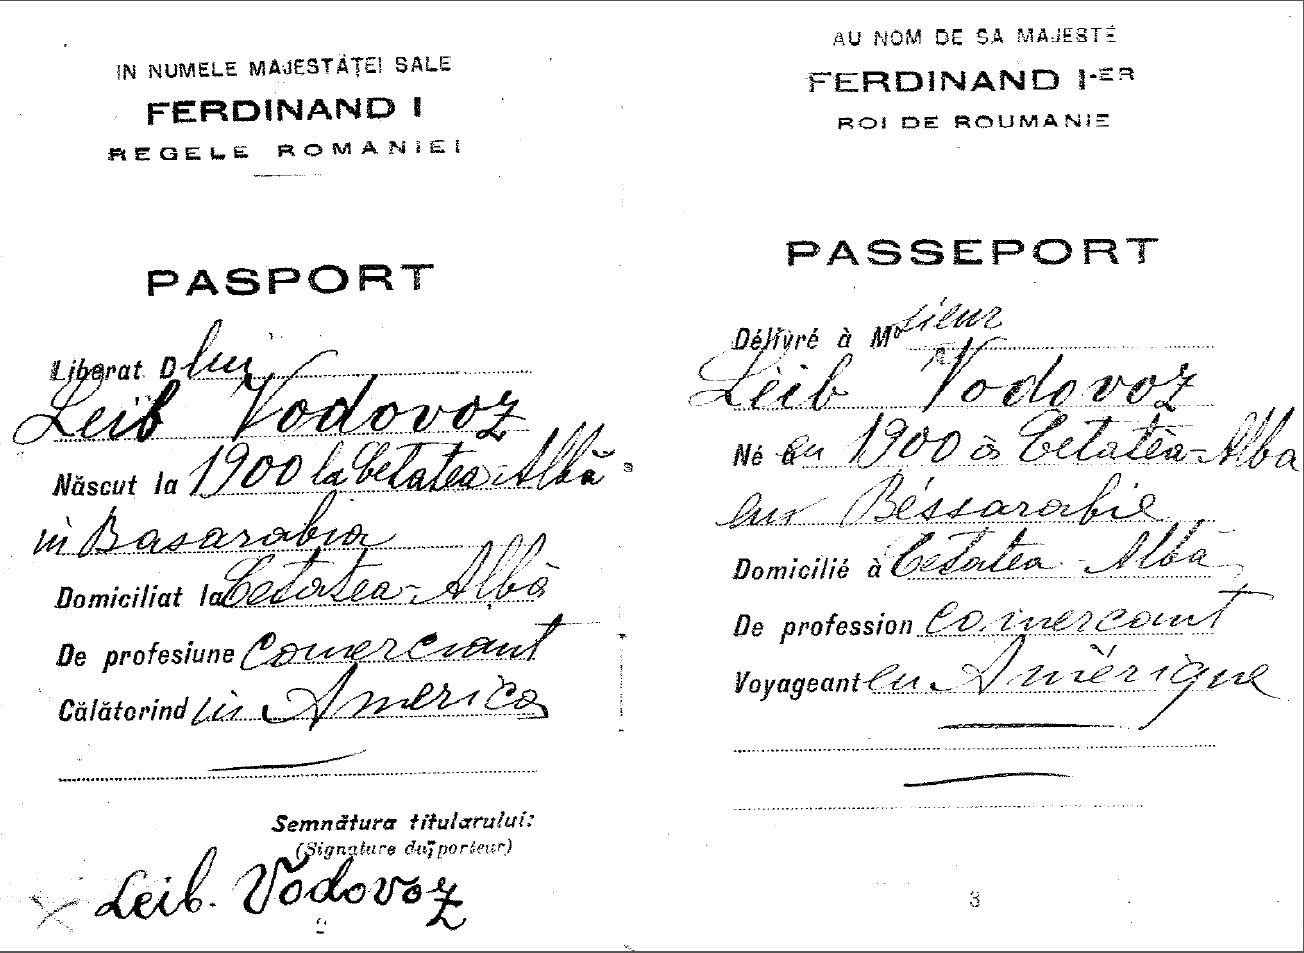 IN NUMELE MAJESTĂȚEI SALE
FERDINAND I
REGELE ROMANIEI
PASPORT
Liberat Dlui
Leib Vodovoz
Născut la 1900 la Cetatea-Albă
in Basarabia
Domiciliat la Cetatea-Albă
De profesiune comerciant
Călătorind in America
Semnătura titularului:
(Signature du porteur)
Leib. Vodovoz
2
AU NOM DE SA MAJESTÉ
FERDINAND I-ER
ROI DE ROUMANIE
PASSEPORT
Délivré à Mosieur
Leib Vodovoz
Né en 1900 à Cetatea-Alba
en Béssarabie
Domicilié à Cetatea-Albă
De profession comerçant
Voyageant en Amérique
3